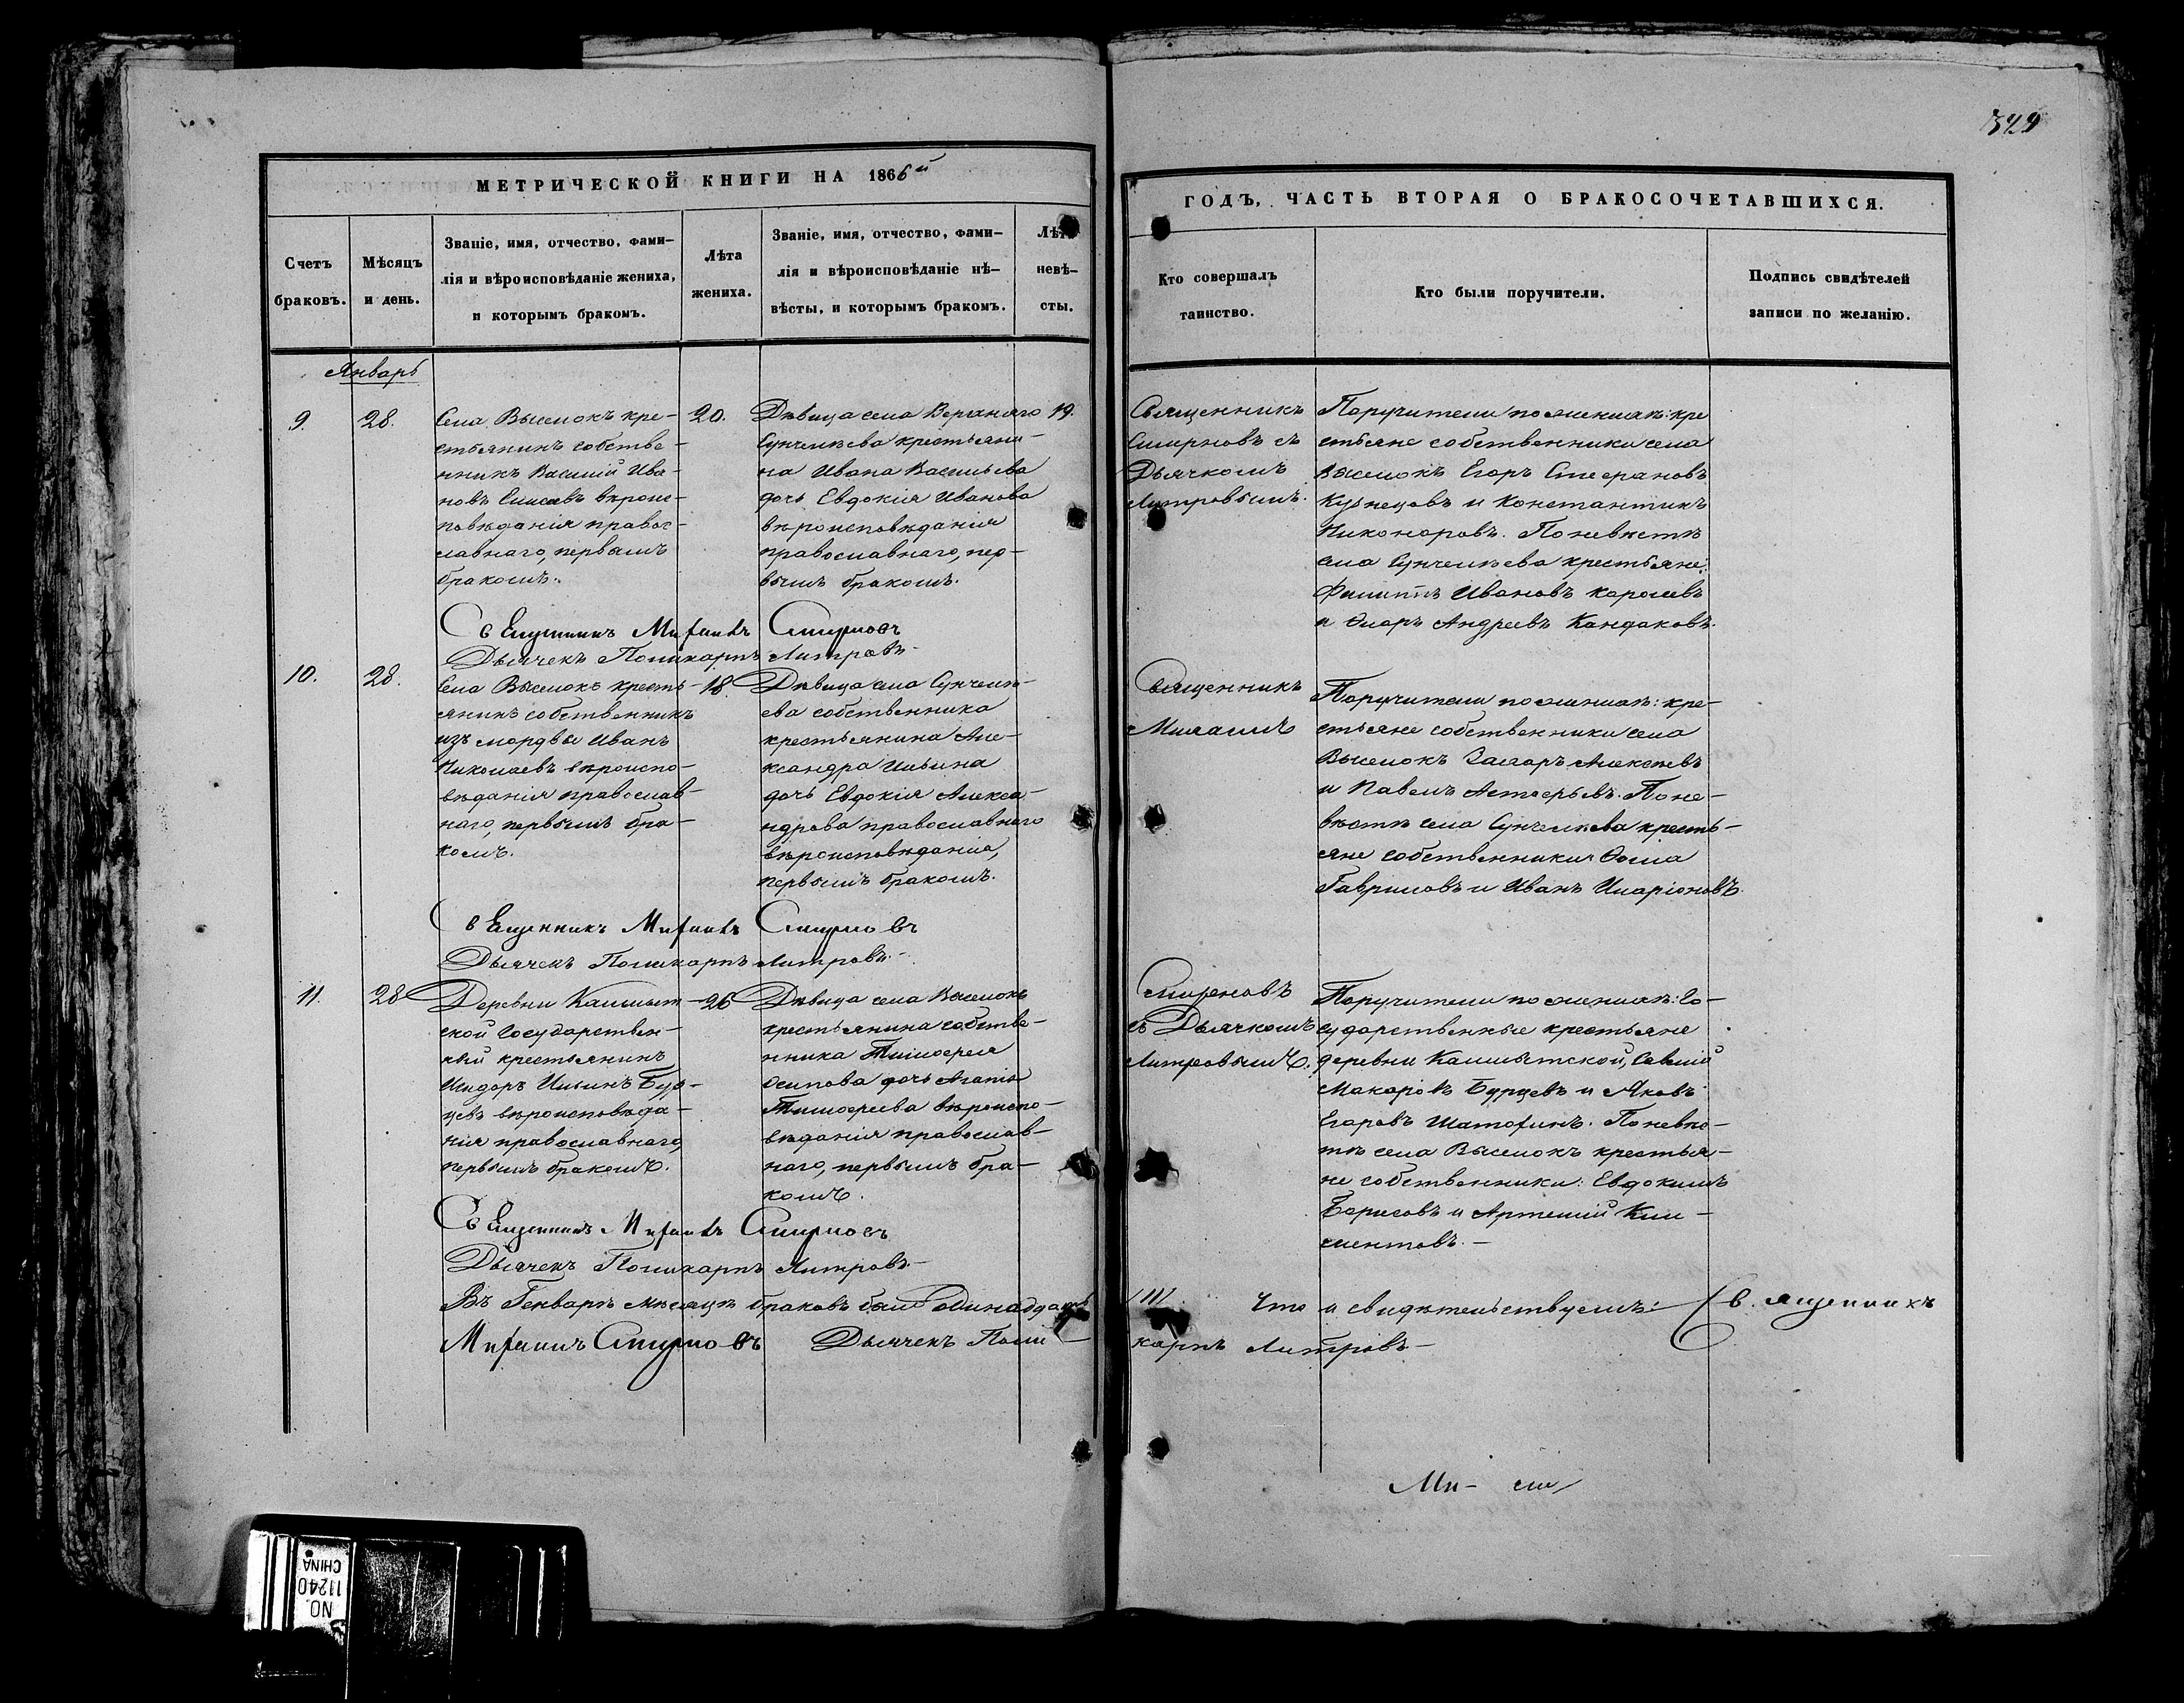 349
МЕТРИЧЕСКОЙ КНИГИ НА 1866й
ГОДЪ, ЧАСТЬ ВТОРАЯ О БРАКОСОЧЕТАВШИХСЯ.
Счетъ
браковъ.
Мѣсяцъ
и день.
Званіе, имя, отчество, фами-
лія и вѣроисповѣданіе жениха,
и которымъ бракомъ.
Лѣта
жениха.
Званіе, имя, отчество, фами-
лія и вѣроисповѣданіе нѣ-
вѣсты, и которымъ бракомъ.
Лѣта
невѣ-
сты.
Кто совершалъ
таинство.
Кто были поручители.
Подпись свидѣтелей
записи по желанію.
Январь
9.
28.
Села Выселокъ кре-
стьянинъ собстве-
нникъ Василій Ива-
новъ Елисевъ вѣроис-
повѣданія правос-
лавнаго, первымъ
бракомъ.
20.
Дѣвица села Верхняго
Сунчелѣева крестьяни-
на Ивана Васильева
дочь Евдокія Иванова
вѣроисповѣданія
православнаго, пер-
вымъ бракомъ.
19.
Священникъ
Смирновъ съ
Дьячкомъ
Литровымъ.
Поручители по женихѣ: кре
стьяне собственники села
Выселокъ Егоръ Стефановъ
Кузнецовъ и Константинъ
Никоноровъ. По невѣстѣ
села Сунчелѣева крестьяне:
Филиппъ Ивановъ Королевъ
и Фларъ Андреевъ Кандаковъ.
Священникъ Михаилъ Смирновъ
Дьячекъ Поликарпъ Литровъ
10.
28.
Села Выселокъ кресть-
янинъ собственникъ
изъ мордвы Иванъ
Николаевъ вѣроиспо-
вѣданія православ-
наго, первымъ бра-
комъ.
18
Дѣвица села Сунчелѣ-
ева собственника
крестьянина Але-
ксандра Ильина
дочь Евдокія Алекса-
ндрова православнаго
вѣроисповѣданія,
первымъ бракомъ.
Священникъ
Михаилъ
Поручители по женихѣ: кре-
стьяне собственники села
Выселокъ Захаръ Алексѣевъ
и Павелъ Астафьевъ. По не-
вѣстѣ села Сунчелѣева кресть-
яне собственники Ѳома
Гавриловъ и Иванъ Иларіоновъ.
Священникъ Михаилъ Смирновъ
Дьячекъ Поликарпъ Литровъ
11.
28
Деревни Камышт-
ской Государствен-
ный крестьянинъ
Исидоръ Ильинъ Бур-
цевъ вѣроисповѣда-
нія православнаго,
первымъ бракомъ.
26
Дѣвица села Выселокъ
крестьянина собстве-
нника Тимофея
Осипова дочь Агафья
Тимофеева вѣроиспо-
вѣданія православ-
наго, первымъ бра-
комъ.
Смирновъ
съ Дьячкомъ
Литровымъ.
Поручители по женихѣ: Го-
сударственные крестьяне
деревни Камыштской, Савелій
Макаровъ Бурцевъ и Яковъ
Егоровъ Шатохинъ. По невѣс-
тѣ села Выселокъ крестья-
не собственники: Евдокимъ
Борисовъ и Артемій Кли-
ментовъ.
Священникъ Михаилъ Смирновъ
Дьячекъ Поликарпъ Литровъ
Въ Генварѣ мѣсяцѣ браковъ было одинадцать /11/. Что и свидѣтельствуемъ: Священникъ
Михаилъ Смирновъ Дьячекъ Поли-
карпъ Литровъ